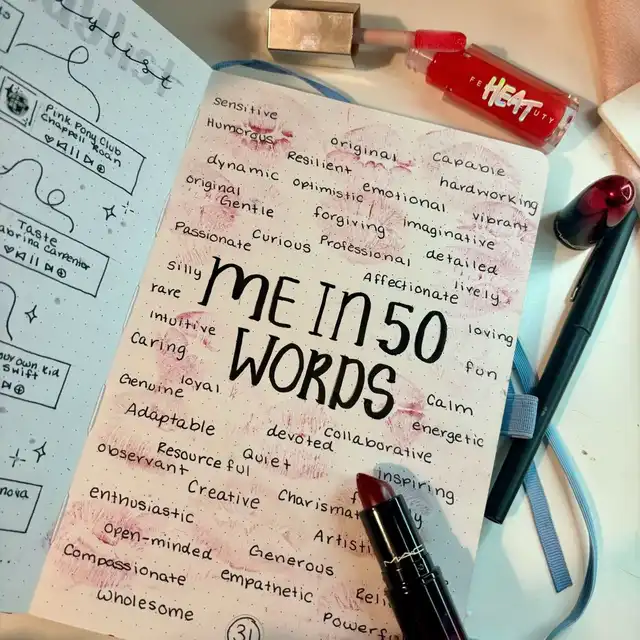 Playlist
Pink Pony Club
Chappell Roan
Taste
Sabrina Carpenter
own kid
Swift
nova
sensitive
Humorous
original
Capable
Resilient
hardworking
dynamic
optimistic
emotional
vibrant
original
Gentle
forgiving
Imaginative
Passionate
Curious
Professional
detailed
silly
Affectionate
lively
rare
ME IN 50
WORDS
loving
intuitive
fun
Caring
Genuine
loyal
Calm
energetic
Adaptable
devoted
Collaborative
observant
Resourceful
Quiet
inspiring
Creative
enthusiastic
open-minded
Generous
Compassionate
empathetic
Wholesome
31
FE HEAT UTY
MAC